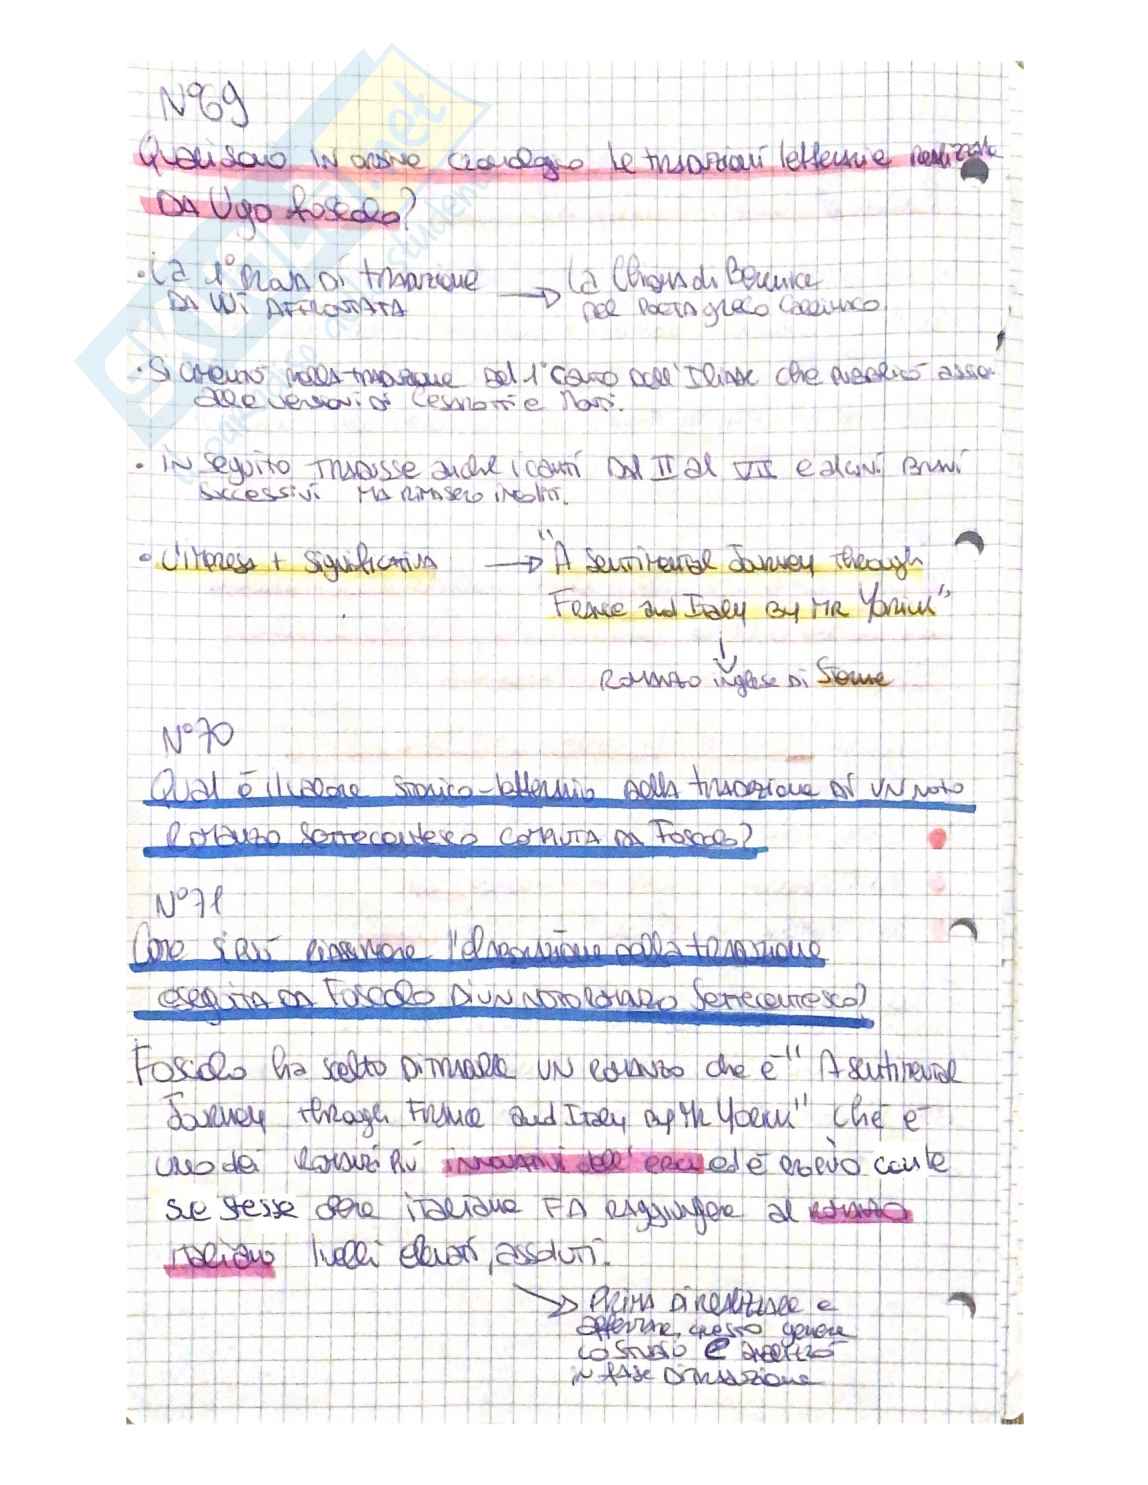 N°69
Quali sono in ordine cronologico le traduzioni letterarie realizzate
da Ugo Foscolo?
• La 1° prova di traduzione → La Chioma di Berenice
da lui affrontata del poeta greco Callimaco
• Si cimentò nella traduzione del 1° canto dell'Iliade che pubblicò
alle versioni di Cesarotti e Monti.
• In seguito tradusse anche i canti dal II al VII e alcuni brani
successivi ma rimasero inediti.
• L'impresa + significativa → "A Sentimental Journey through
France and Italy by Mr Yorick"
Romanzo inglese di Sterne
N°70
Qual è il valore storico-letterario della traduzione di un noto
romanzo settecentesco compiuta da Foscolo?
N°71
Come si può riassumere l'elaborazione della traduzione
eseguita da Foscolo di un noto romanzo settecentesco?
Foscolo ha scelto di tradurre un romanzo che è "A Sentimental
Journey through France and Italy by Mr Yorick" che è
uno dei romanzi più innovativi dell'epoca ed è
sue stesse opere italiane fa raggiungere al romanzo
italiano livelli elevati, assoluti.
→ Prima di realizzare e
affermare questo genere
lo studiò e analizzò
in fase di traduzione